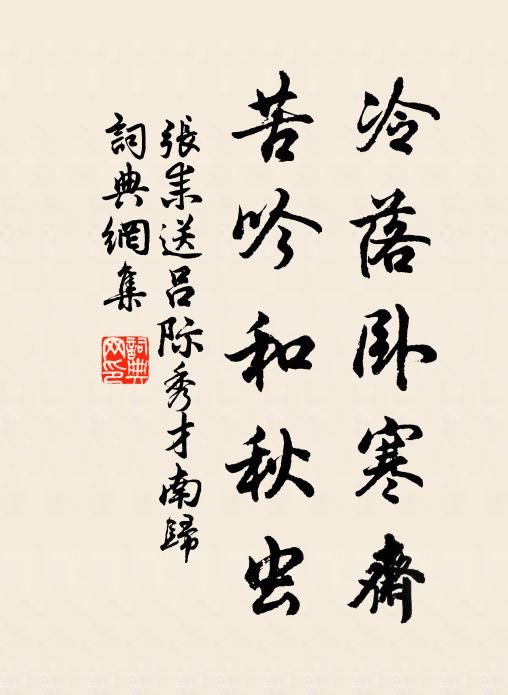 冷落卧寒齋
苦吟和秋虫
張耒送呂际秀才南歸
詞典網集
詞典網印